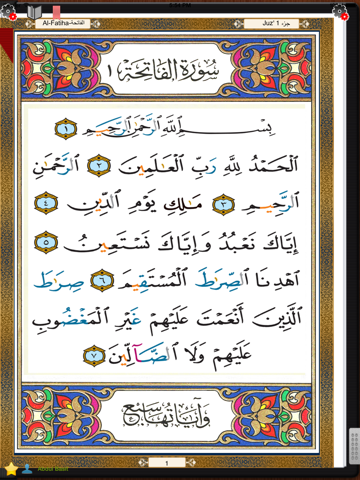 Al-Fatiha-الفاتحة
Juz' 1 جزء
سُورَةُ الفَاتِحَةِ ١
بِسْمِ ٱللَّهِ ٱلرَّحْمَٰنِ ٱلرَّحِيمِ ١
ٱلْحَمْدُ لِلَّهِ رَبِّ ٱلْعَٰلَمِينَ ٢ ٱلرَّحْمَٰنِ
ٱلرَّحِيمِ ٣ مَٰلِكِ يَوْمِ ٱلدِّينِ ٤
إِيَّاكَ نَعْبُدُ وَإِيَّاكَ نَسْتَعِينُ ٥
ٱهْدِنَا ٱلصِّرَٰطَ ٱلْمُسْتَقِيمَ ٦ صِرَٰطَ
ٱلَّذِينَ أَنْعَمْتَ عَلَيْهِمْ غَيْرِ ٱلْمَغْضُوبِ
عَلَيْهِمْ وَلَا ٱلضَّآلِّينَ ٧
وَآيَاتُهَا سَبْعٌ
1
Abdul Basit